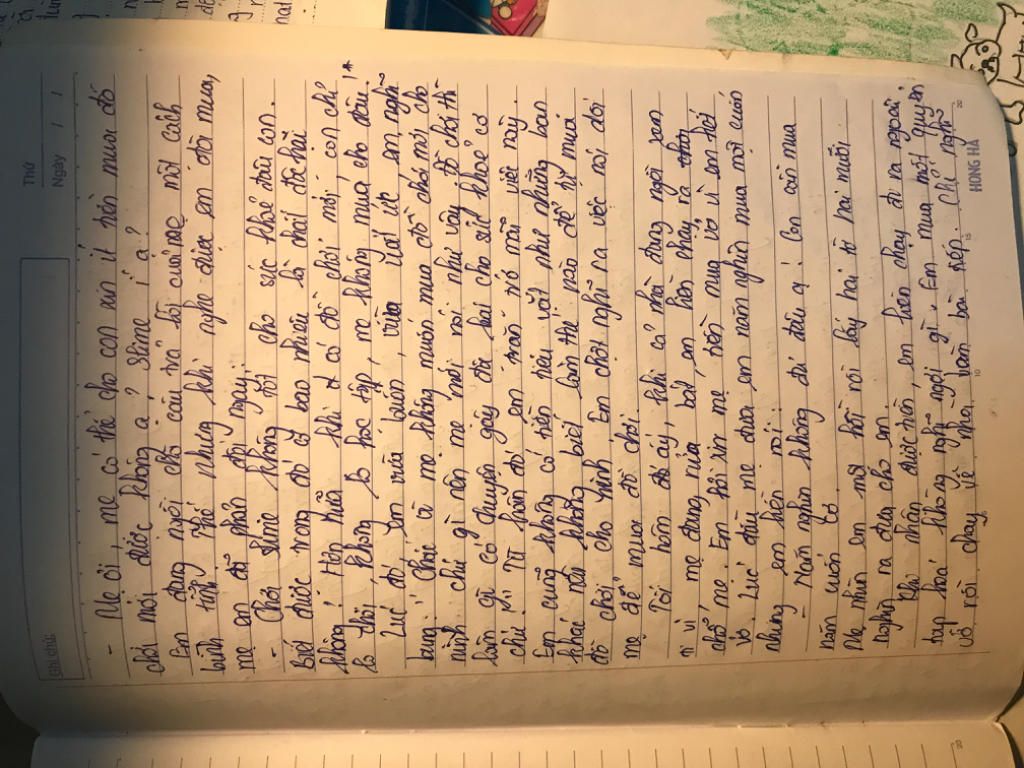 Thứ
Ngày / /
Ghi chú:
- Mẹ ơi, mẹ có thể cho con xin ít tiền mua đồ
chơi mới được không ạ? Slime í ạ?
Em đang ngồi chờ câu trả lời của mẹ một cách
bình tĩnh. Thế nhưng khi nghe được em đòi mua,
mẹ em đã phản đối ngay:
- Chơi slime không tốt cho sức khoẻ đâu con.
Biết được trong đó có bao nhiêu là chất độc hải
không! Hơn nữa khi có đồ chơi mới, con chỉ
lo chơi, không lo học tập, mẹ không mua cho đâu!
Lúc đó, em vừa buồn, vừa uất ức em nghĩ
bụng: "Chắc là mẹ không muốn mua đồ chơi mới cho
mình chứ gì nên mẹ mới nói như vậy, đồ chơi thì
làm gì có chuyện gây độc hại cho sức khoẻ cơ
chứ!" Từ hôm đó, em trằn trọ mãi việc này.
Em cũng không có tiền tiêu vặt như những bạn
khác nên không biết làm thế nào để tự mua
đồ chơi cho mình. Em chợt nghĩ ra việc nói dối
mẹ để mua đồ chơi.
Tối hôm đó ấy, khi cả nhà đang ngồi xem
ti vi mẹ đang rửa bát, em liền chạy ra
chỗ mẹ. Em hỏi xin mẹ tiền mua vở vì em hết
vở. Lúc đầu mẹ đưa em năm nghìn mua một cuốn
nhưng em liền nói:
- Năm nghìn không đủ đâu ạ! Con cần mua
năm cuốn cơ.
Mẹ nhìn em một hồi rồi lấy hai tờ hai mươi
nghìn ra đưa cho em.
Khi nhận được tiền, em liền chạy đi ra ngoài
tạp hoá không nghĩ ngợi gì. Em mua một quyển
vở rồi chạy về nhà, làm bài tiếp. Chỉ nghĩ
HONG HA
10
15
20
20